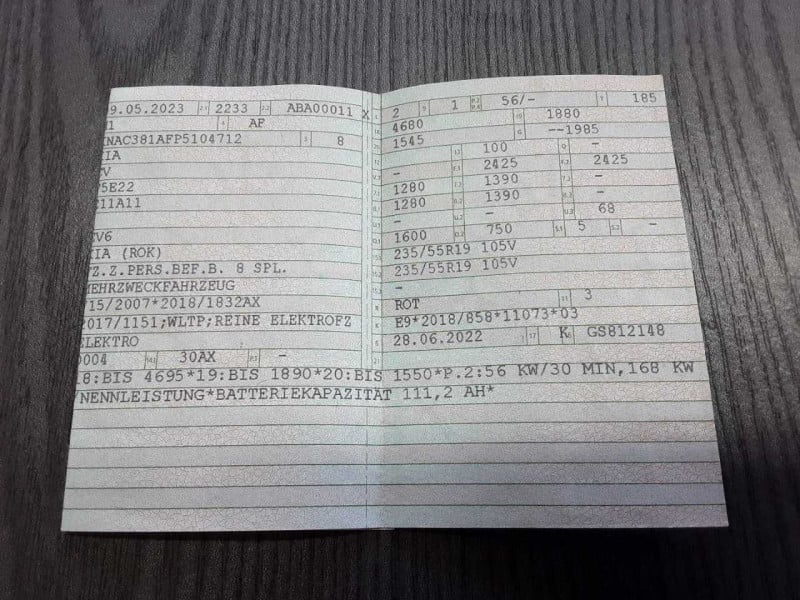 9.05.2023 2233 ABA00011 X
1 AF
NAC381AFP5104712 8
IA
V
5E22
11A11
EV6
KIA (ROK)
Z.Z.PERS.BEF.B. 8 SPL.
MEHRZWECKFAHRZEUG
715/2007*2018/1832AX
2017/1151;WLTP;REINE ELEKTROFZ
ELEKTRO
0004 30AX -
2 1 56/- 185
4680 1880
1545 --1985
- 100 -
- 2425 2425
1280 1390 -
1280 1390 -
- - 68
1600 750 5 -
235/55R19 105V
235/55R19 105V
-
ROT 3
E9*2018/858*11073*03
28.06.2022 K GS812148
18:BIS 4695*19:BIS 1890*20:BIS 1550*P.2:56 KW/30 MIN,168 KW
NENNLEISTUNG*BATTERIEKAPAZITÄT 111,2 AH*